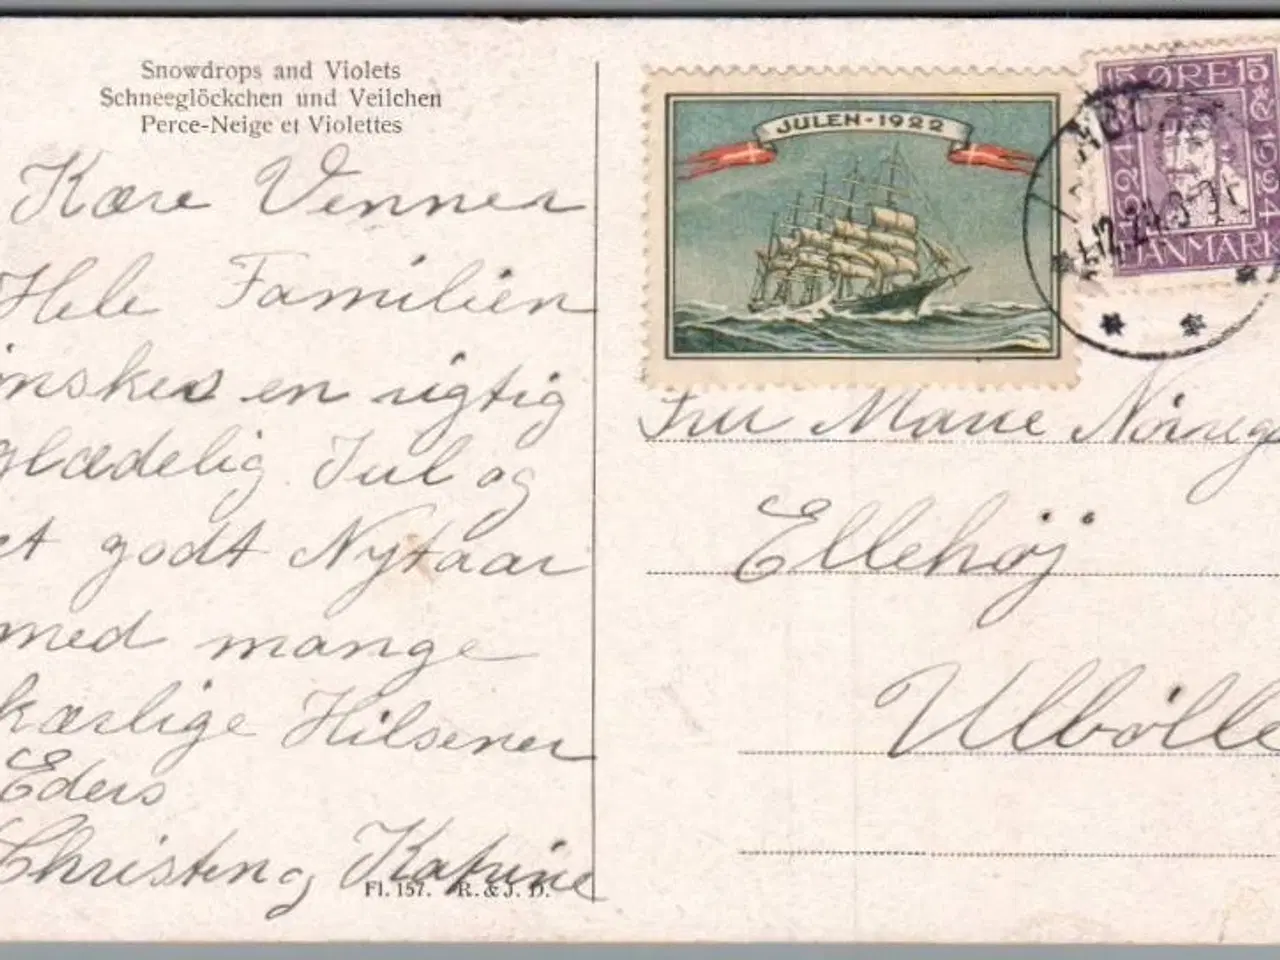 Snowdrops and Violets
Schneeglöckchen und Veilchen
Perce-Neige et Violettes
Kære Venner
Hele Familien
ønskes en rigtig
glædelig Jul og
et godt Nytaar
med mange
kærlige Hilsener
Eders
Christen og Katrine
Fl. 157. R. & J. D.
JULEN - 1922
15 ØRE 15
1624 1924
DANMARK
12.24
Fru Marie
Ellehøj
Ulbølle